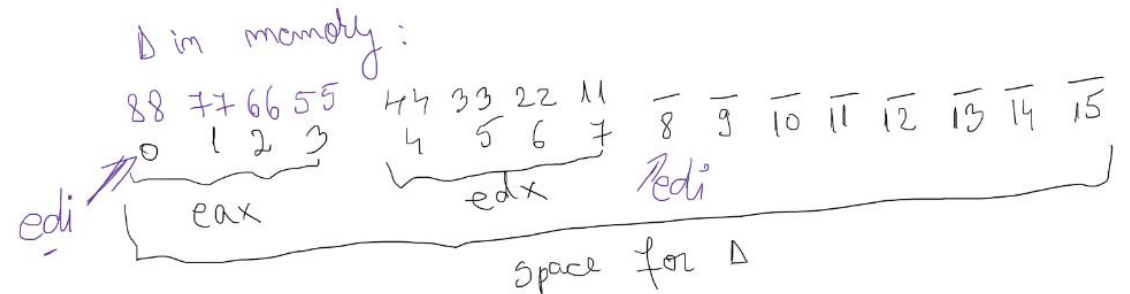 D in memory:
88 77 66 55 44 33 22 11 _ _ _ _ _ _ _ _
0 1 2 3 4 5 6 7 8 9 10 11 12 13 14 15
edi eax edx edi
space for D